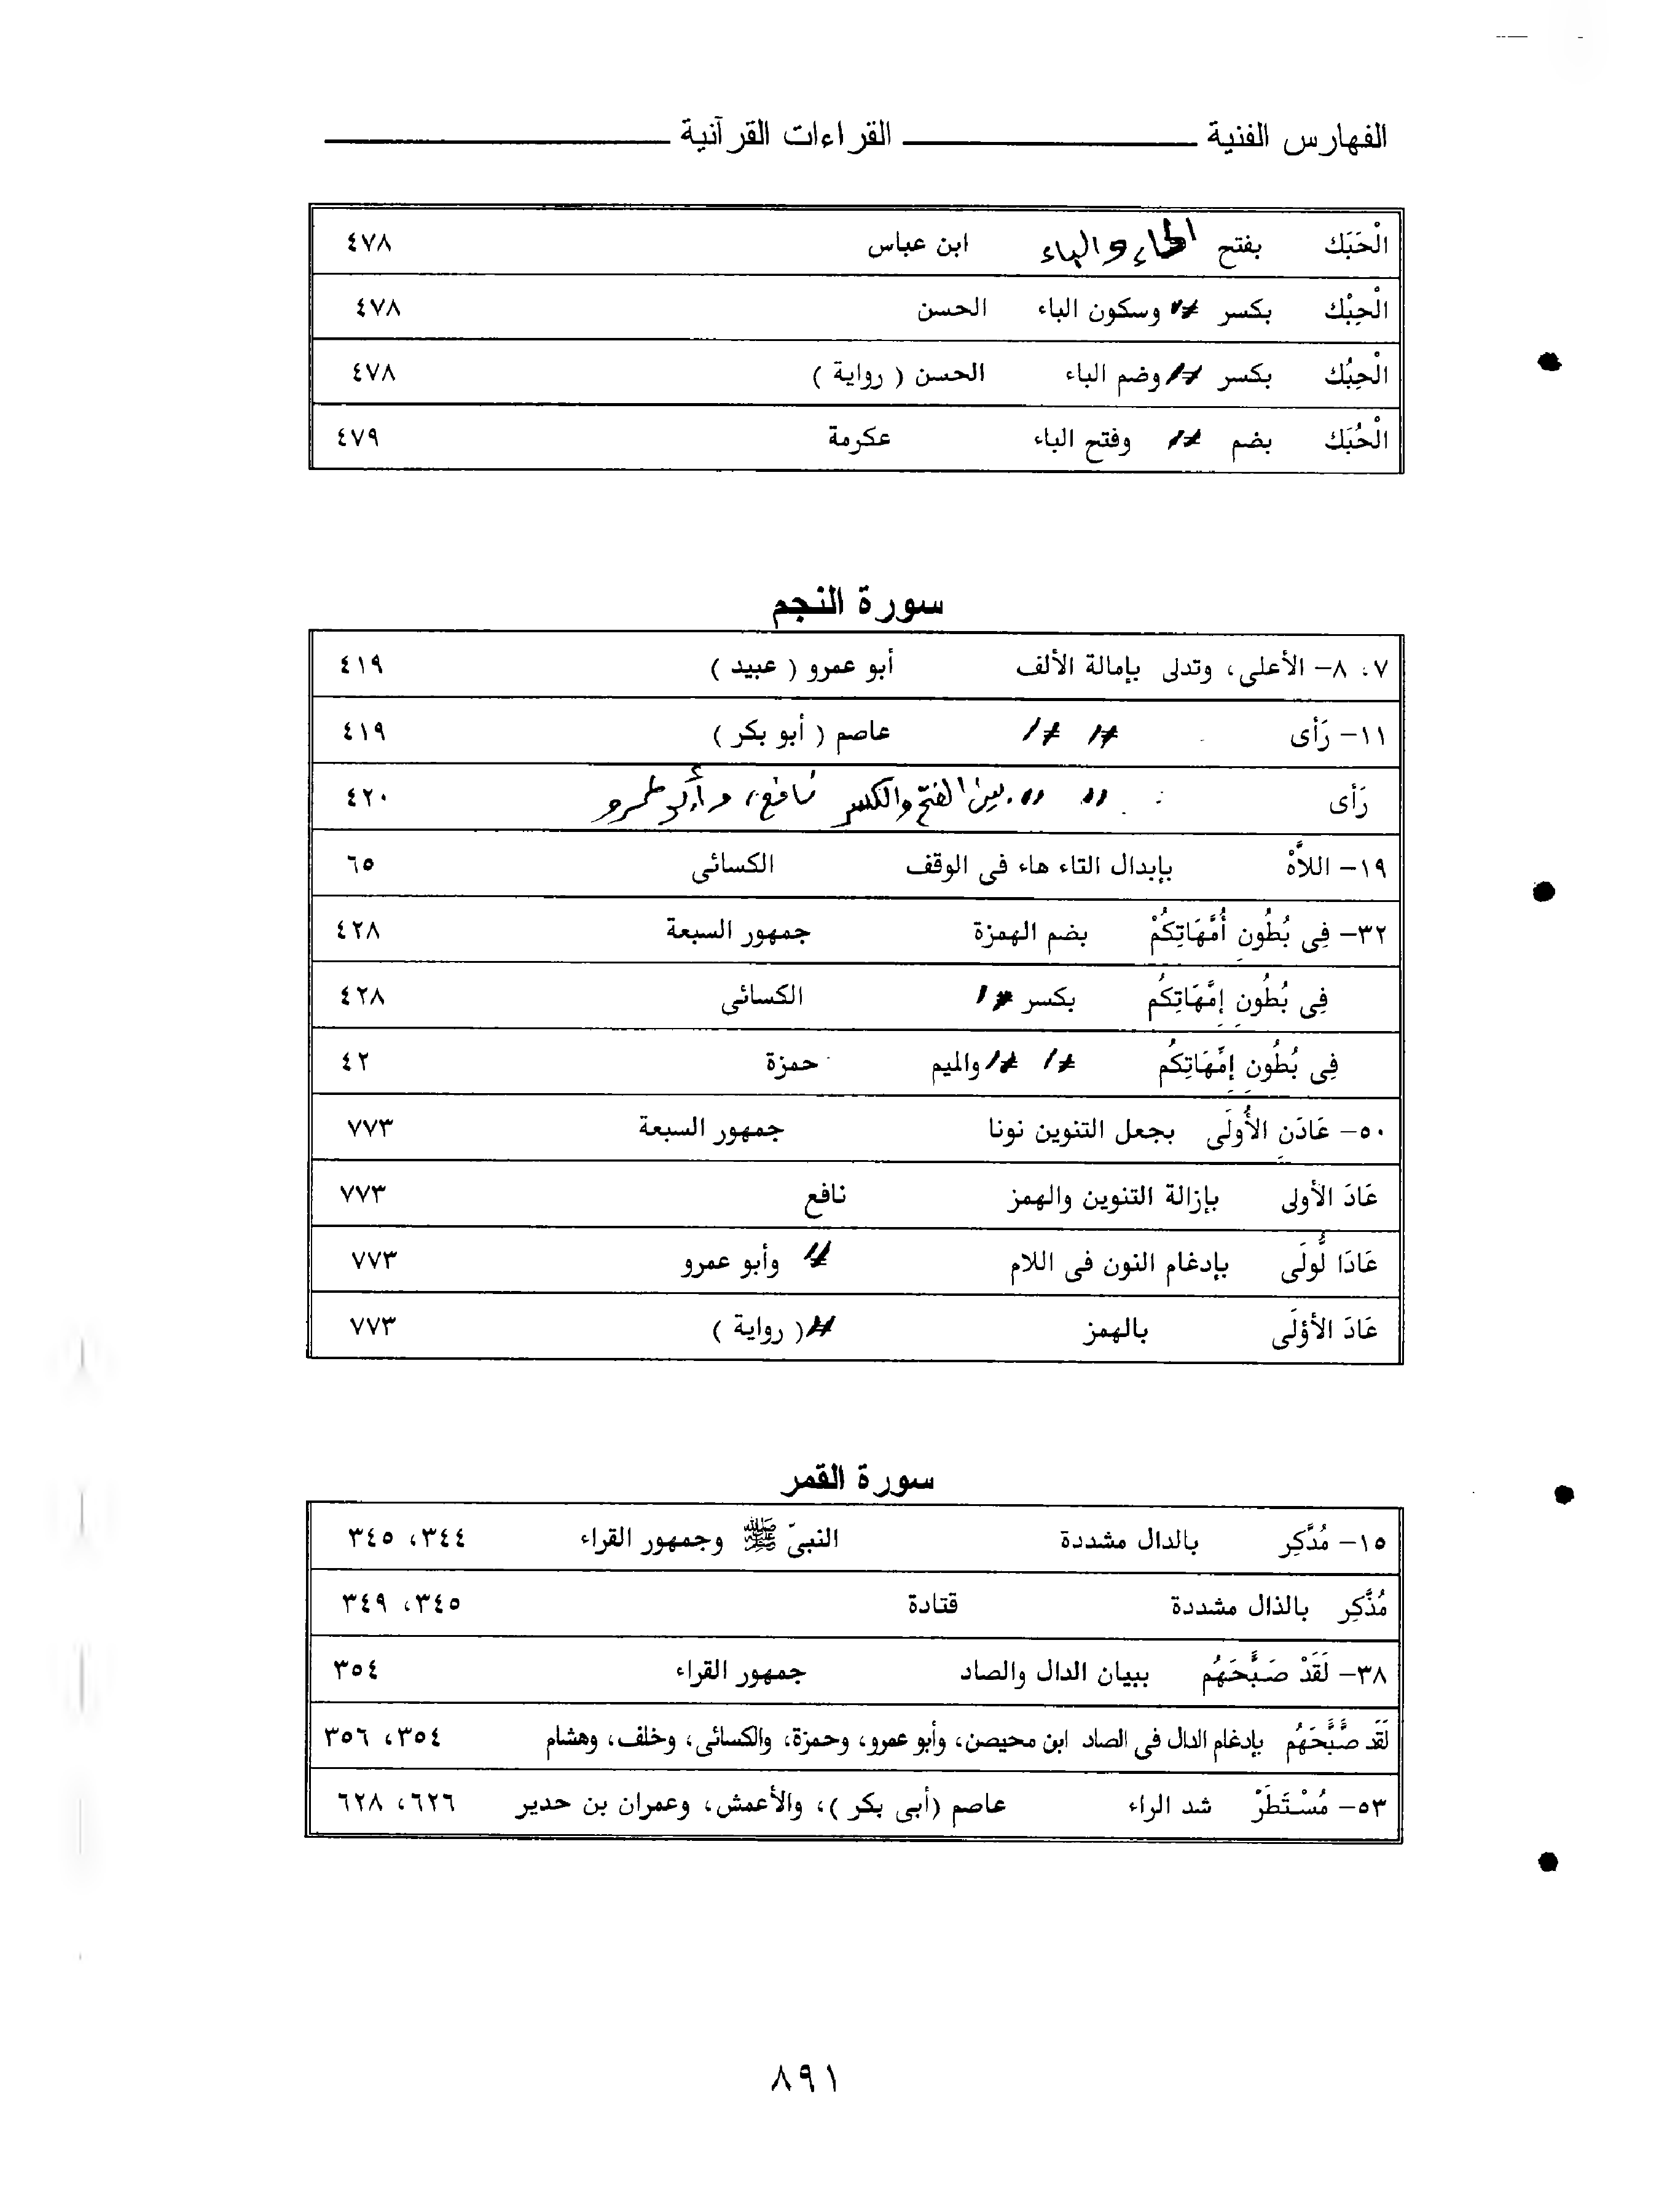 الفهارس الفنية القراءات القرآنية
الْحَبَك بفتح الحاء والباء ابن عباس ٤٧٨
الْحِبْك بكسر // وسكون الباء الحسن ٤٧٨
الْحِبُك بكسر // وضم الباء الحسن ( رواية ) ٤٧٨
الْحُبَك بضم // وفتح الباء عكرمة ٤٧٩
سورة النجم
٧، ٨– الأعلى، وتدلى بإمالة الألف أبو عمرو ( عبيد ) ٤١٩
١١– رَأى // // عاصم ( أبو بكر ) ٤١٩
رَأى // // بين الفتح والكسر نافع، وأبو عمرو ٤٢٠
١٩– اللاَّهْ بإبدال التاء هاء فى الوقف الكسائى ٦٥
٣٢– فِى بُطُونِ أُمَّهَاتِكُمْ بضم الهمزة جمهور السبعة ٤٢٨
فِى بُطُونِ إِمَّهَاتِكُم بكسر // الكسائى ٤٢٨
فِى بُطُونِ إِمِّهَاتِكُم // // والميم حمزة ٤٢
٥٠– عَادَنِ الأُولَى بجعل التنوين نونا جمهور السبعة ٧٧٣
عَادَ الأولى بإزالة التنوين والهمز نافع ٧٧٣
عَادَا لُّولَى بإدغام النون فى اللام // وأبو عمرو ٧٧٣
عَادَ الأؤلَى بالهمز // ( رواية ) ٧٧٣
سورة القمر
١٥– مُدَّكِر بالدال مشددة النبىّ ﷺ وجمهور القراء ٣٤٤، ٣٤٥
مُذَّكِر بالذال مشددة قتادة ٣٤٥، ٣٤٩
٣٨– لَقَدْ صَبَّحَهُم ببيان الدال والصاد جمهور القراء ٣٥٤
لَقَد صَّبَّحَهُم بإدغام الدال فى الصاد ابن محيصن، وأبو عمرو، وحمزة، والكسائى، وخلف، وهشام ٣٥٤، ٣٥٦
٥٣– مُسْتَطَرّ شد الراء عاصم (أبى بكر )، والأعمش، وعمران بن حدير ٦٢٦، ٦٢٨
٨٩١